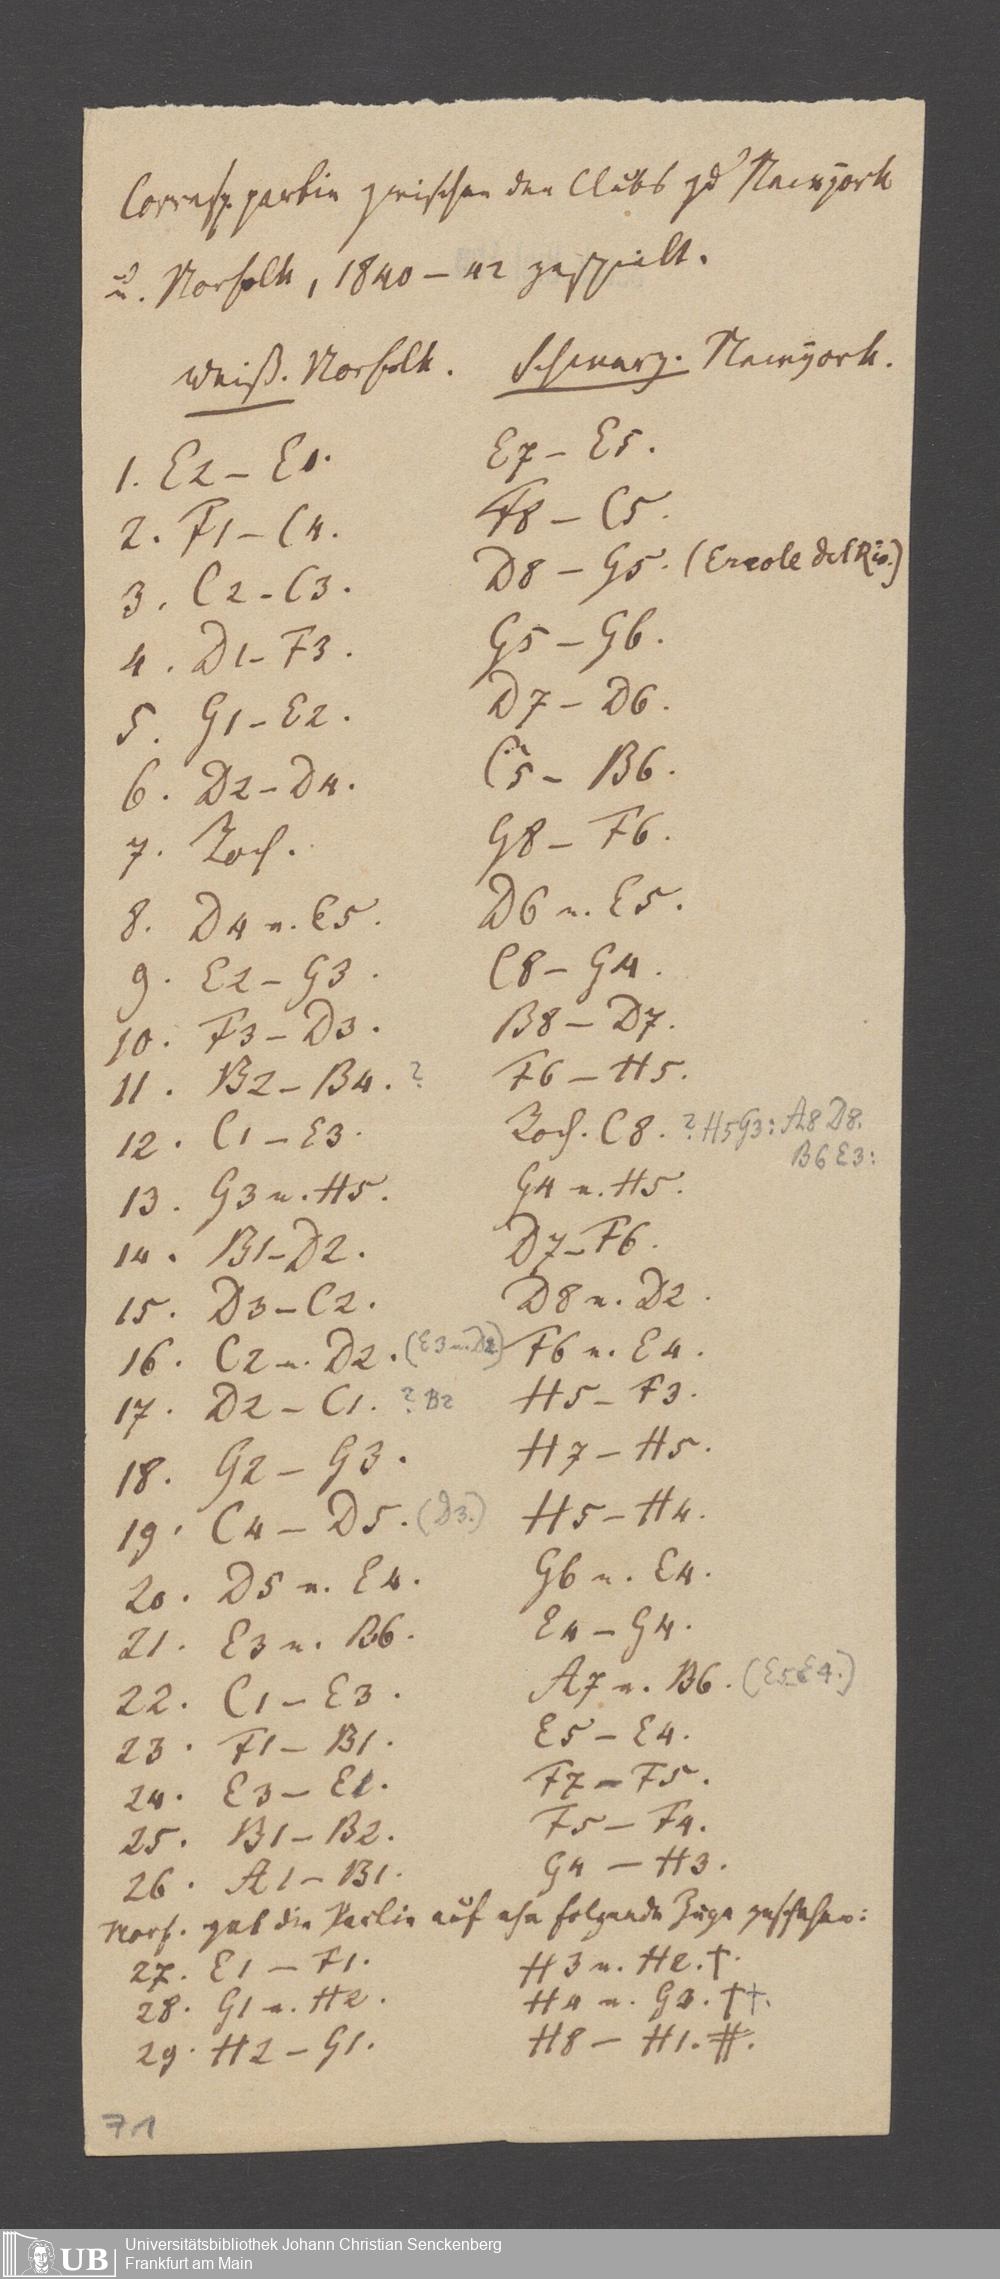 Corresp.partie zwischen den Clubs zu Newyork
u. Norfolk, 1840–42 gespielt.
Weiß. Norfolk. Schwarz. Newyork.
1. E2 – E4. E7 – E5.
2. F1 – C4. F8 – C5.
3. C2 – C3. D8 – G5. (Ercole del Rio.)
4. D1 – F3. G5 – G6.
5. G1 – E2. D7 – D6.
6. D2 – D4. C5 – B6.
7. Roch. G8 – F6.
8. D4 n. E5. D6 n. E5.
9. E2 – G3. C8 – G4.
10. F3 – D3. B8 – D7.
11. B2 – B4. ? F6 – H5.
12. C1 – E3. Roch. C8. ? H5 G3: A8 D8.
B6 E3:
13. G3 n. H5. G4 n. H5.
14. B1 – D2. D7 – F6.
15. D3 – C2. D8 n. D2.
16. C2 n. D2. (E3 n. D2) F6 n. E4.
17. D2 – C1. ? B2 H5 – F3.
18. G2 – G3. H7 – H5.
19. C4 – D5. (D3.) H5 – H4.
20. D5 n. E4. G6 n. E4.
21. E3 n. B6. E4 – G4.
22. C1 – E3. A7 n. B6. (E5 E4.)
23. F1 – B1. E5 – E4.
24. E3 – E1. F7 – F5.
25. B1 – B2. F5 – F4.
26. A1 – B1. G4 – H3.
Norf. gab die Partie auf ehe folgende Züge geschehen:
27. E1 – F1. H3 n. H2. †.
28. G1 n. H2. H4 n. G3. ††.
29. H2 – G1. H8 – H1. #.
71
UB
Universitätsbibliothek Johann Christian Senckenberg
Frankfurt am Main